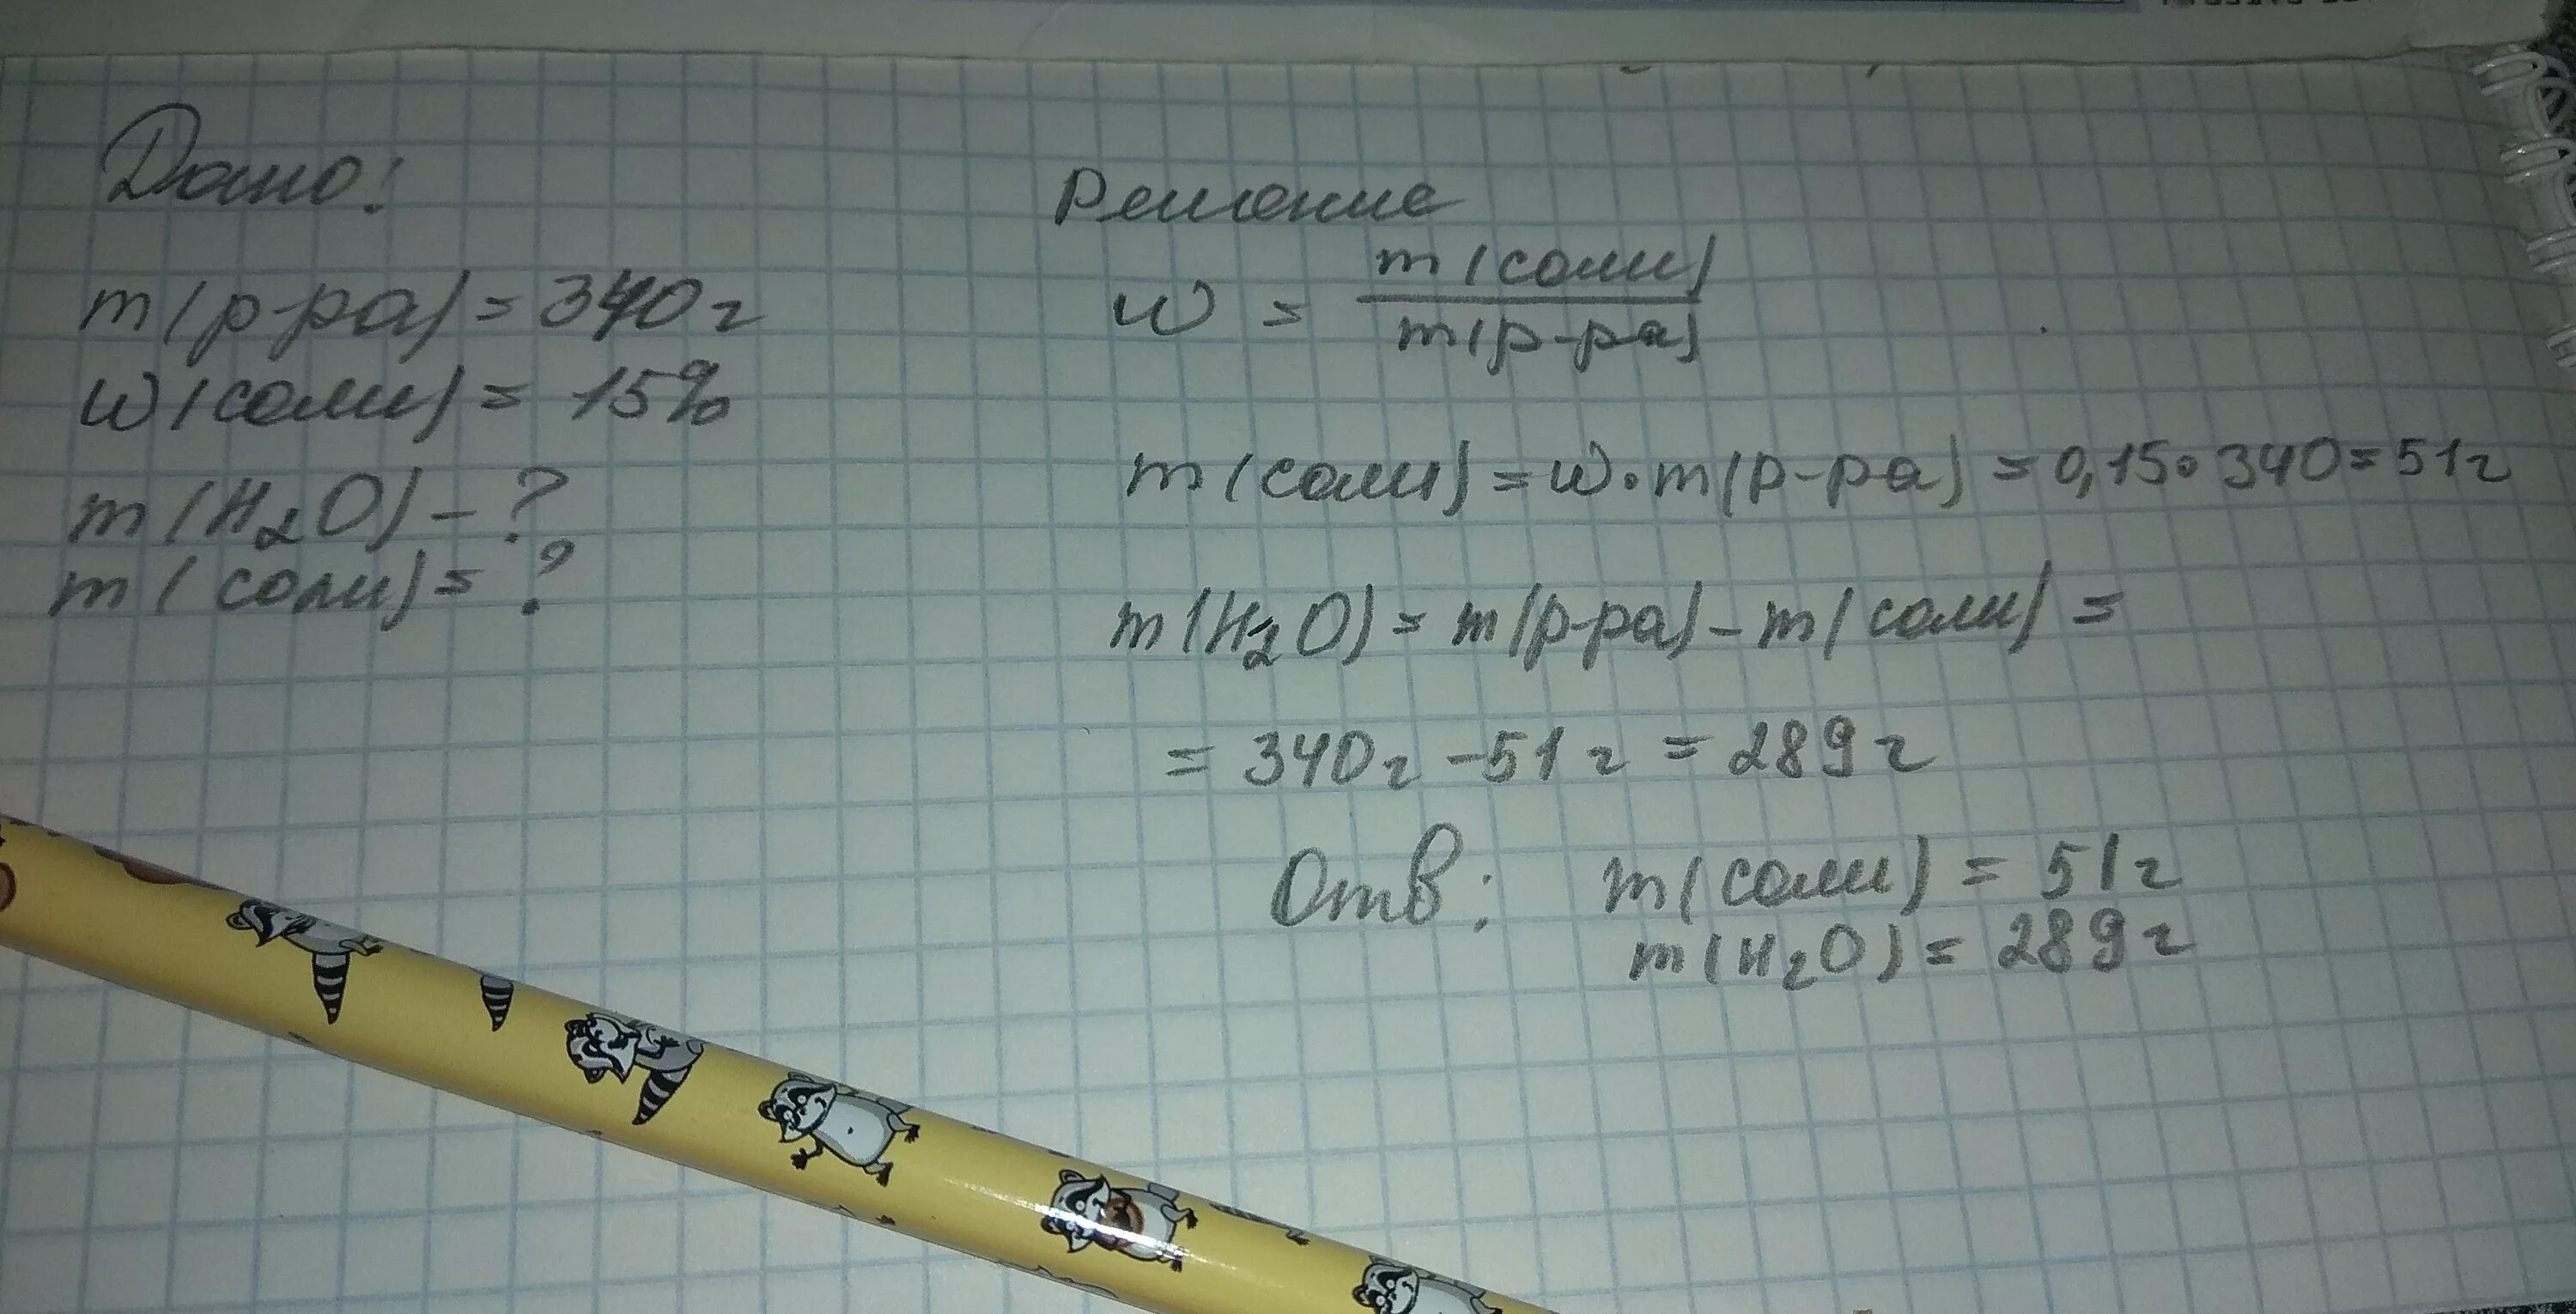 Дано:
m(р-ра) = 340 г
w(соли) = 15%
m(H₂O) - ?
m(соли) = ?
Решение
w = m(соли) / m(р-ра)
m(соли) = w • m(р-ра) = 0,15 • 340 = 51 г
m(H₂O) = m(р-ра) - m(соли) =
= 340 г - 51 г = 289 г
Отв: m(соли) = 51 г
m(H₂O) = 289 г